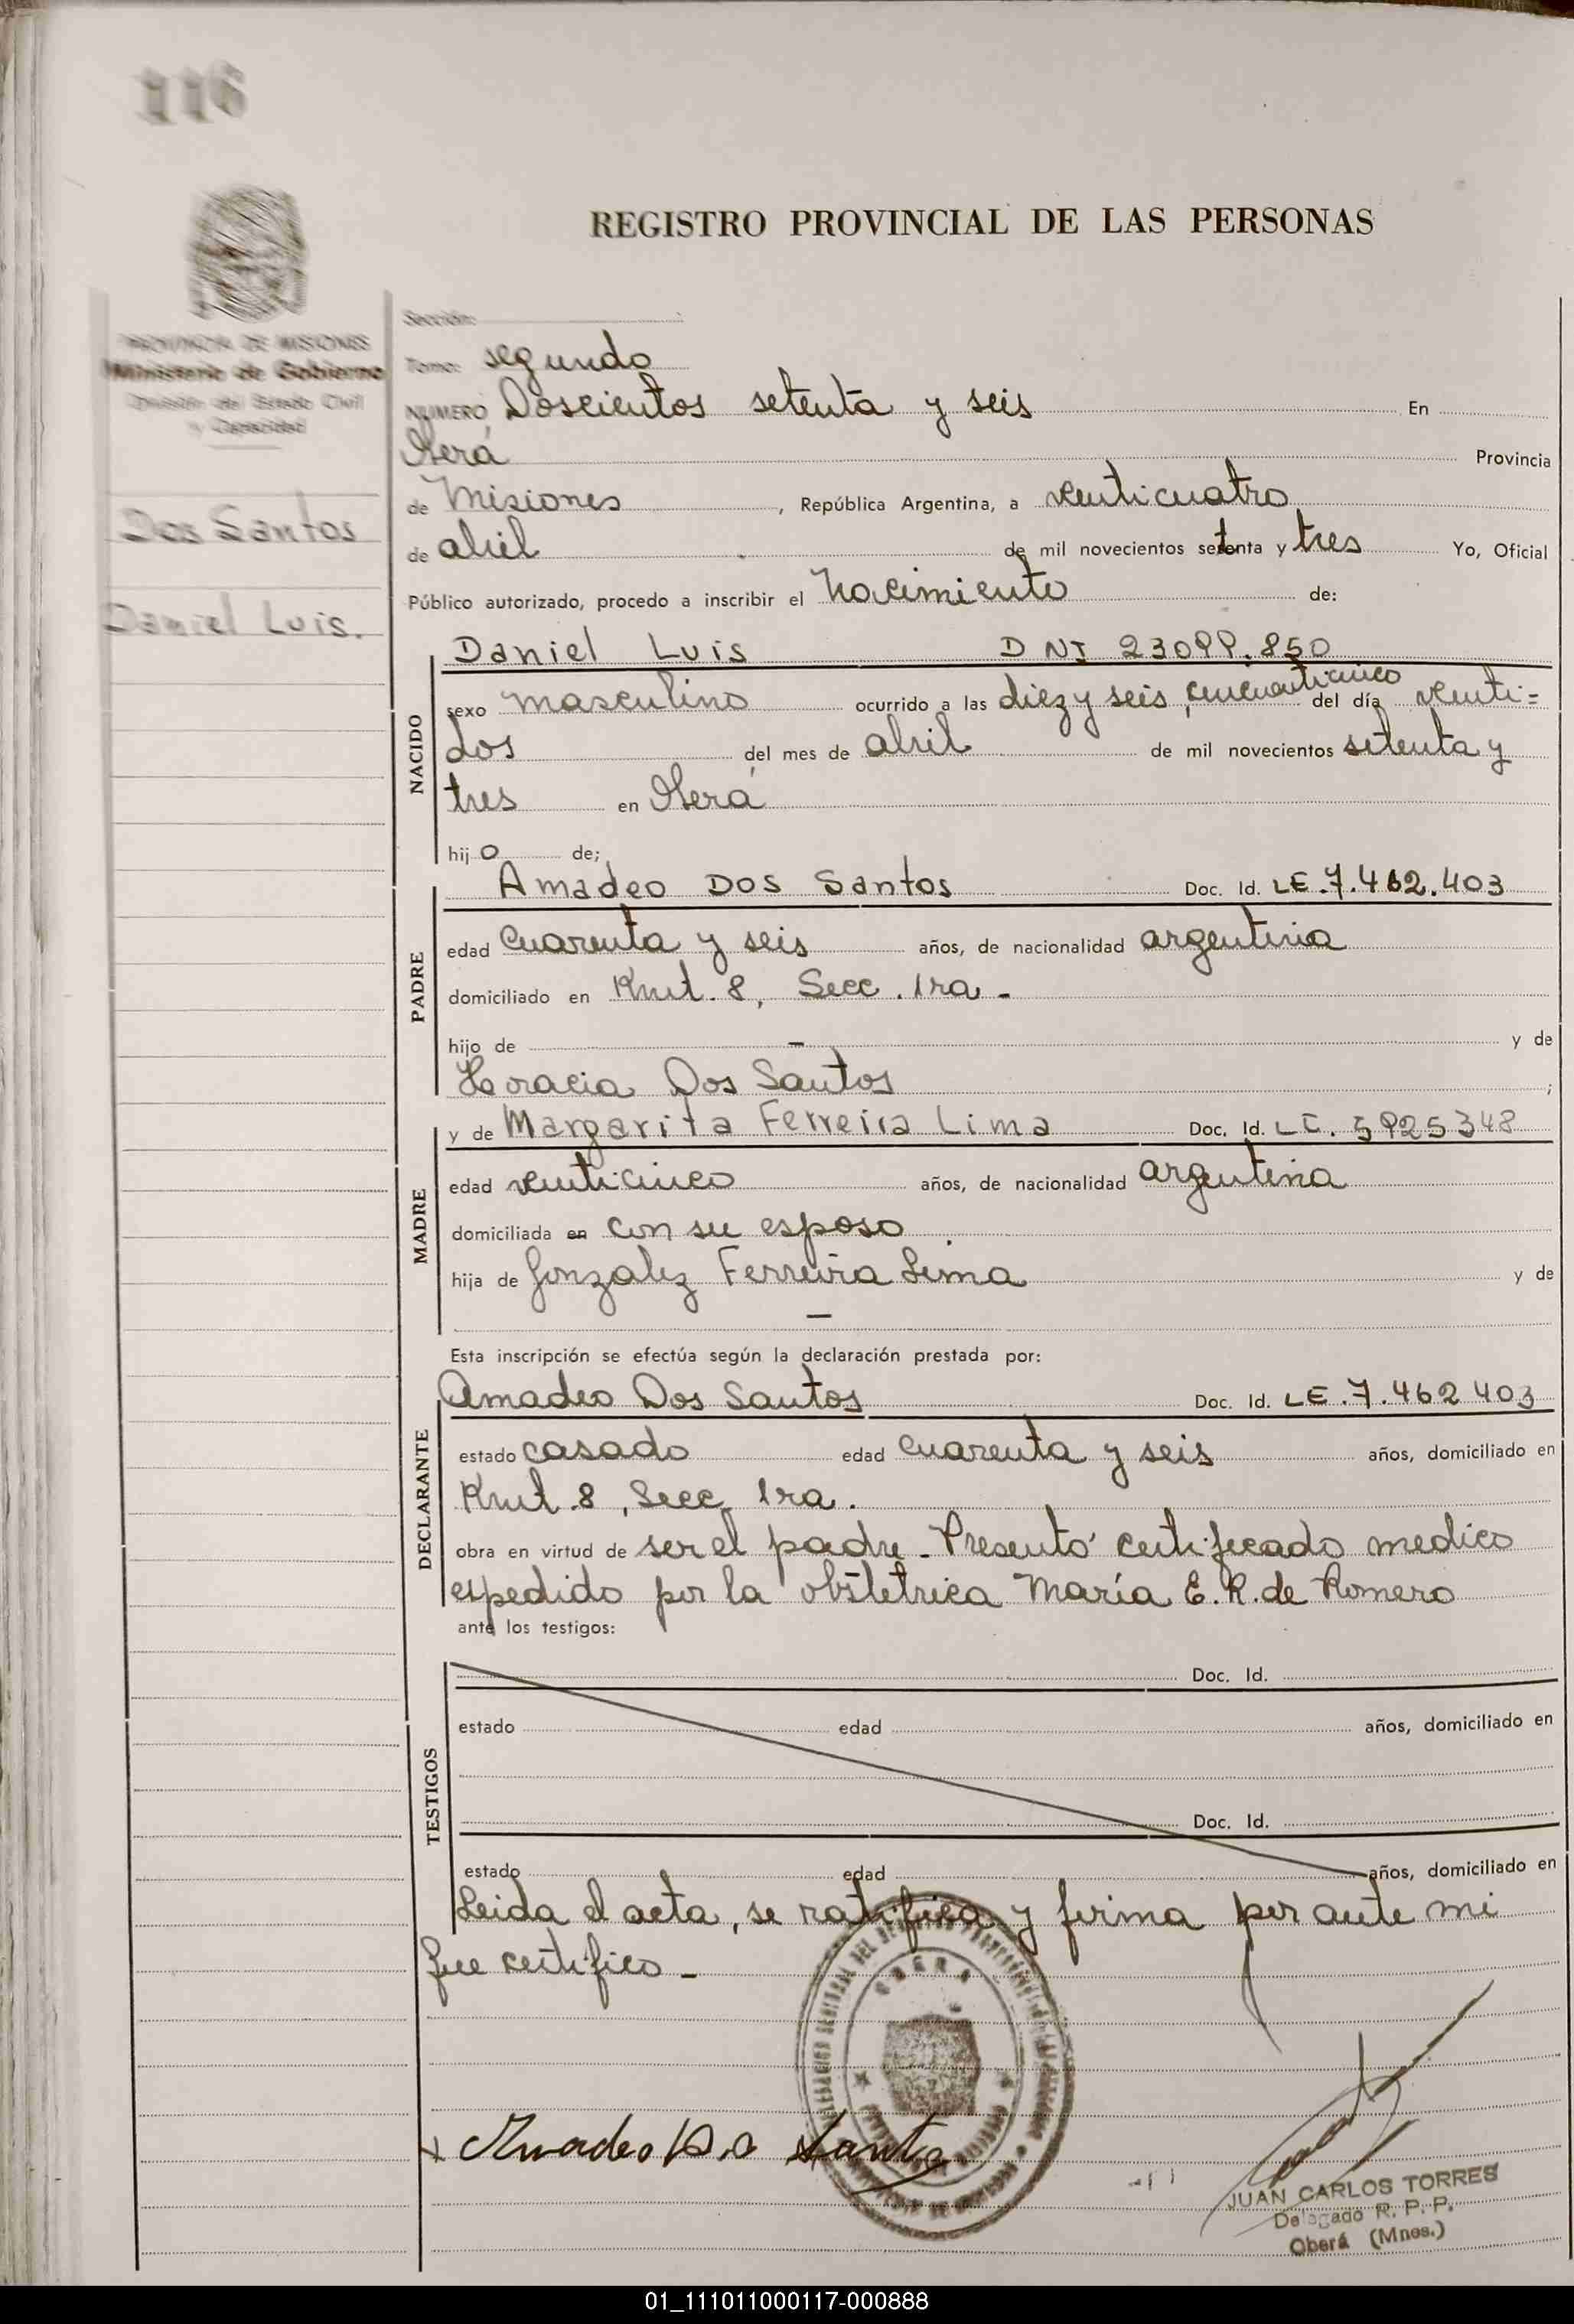 116
REGISTRO PROVINCIAL DE LAS PERSONAS
PROVINCIA DE MISIONES
Ministerio de Gobierno
División del Estado Civil
y Capacidad
Dos Santos
Daniel Luis.
Sección:
Tomo: segundo
NUMERO Doscientos setenta y seis En
Oberá Provincia
de Misiones, República Argentina, a venticuatro
de abril de mil novecientos setenta y tres Yo, Oficial
Público autorizado, procedo a inscribir el Nacimiento de:
NACIDO
Daniel Luis DNI 23099.850
sexo masculino ocurrido a las diez y seis, cincuenticinco del día venti=
dos del mes de abril de mil novecientos setenta y
tres en Oberá
hijo de;
PADRE
Amadeo Dos Santos Doc. Id. LE.7.462.403
edad cuarenta y seis años, de nacionalidad argentina
domiciliado en Kmt. 8, Secc. 1ra -
hijo de - y de
Horacia Dos Santos ;
MADRE
y de Margarita Ferreira Lima Doc. Id. LC. 5925348
edad venticinco años, de nacionalidad argentina
domiciliada en con su esposo
hija de Gonzalez Ferreira Lima y de
-
Esta inscripción se efectúa según la declaración prestada por:
DECLARANTE
Amadeo Dos Santos Doc. Id. LE.7.462 403
estado casado edad cuarenta y seis años, domiciliado en
Kmt. 8, Secc. 1ra.
obra en virtud de ser el padre - Presentó certificado medico
espedido por la obstetrica María E. R. de Romero
ante los testigos:
TESTIGOS
Doc. Id.
estado edad años, domiciliado en
Doc. Id.
estado edad años, domiciliado en
Leida el acta, se ratifica y firma por ante mi
que certifico -
OBERA
Amadeo Dos Santos
JUAN CARLOS TORRES
Delegado R. P. P.
Oberá (Mnes.)
01_111011000117-000888